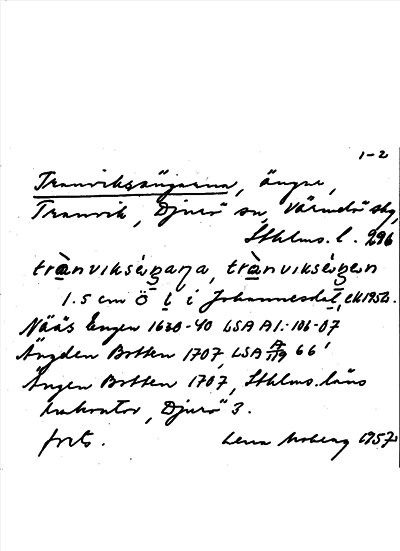 1-2
Tranviksängarna, ängar,
Tranvik, Djurö sn, Värmdö skg,
Sthlms. l. 296
trànvikséŋgaɲa, trànvikséŋgen
1.5 cm Ö l i Johannesdal, ek 1952.
Nääs Engen 1630-40 LSA A1:106-07
Ängden Botten 1707, LSA A/119 66
Ängen Botten 1707, Sthlms. läns
lmkontor, Djurö 3.
forts. Lena Moberg 1957